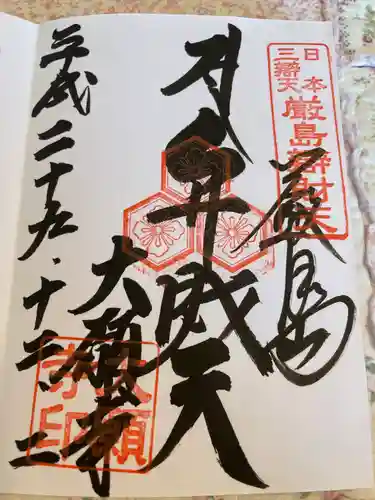 日本
三辨天
厳島辨財天
厳島
弁財天
大願寺
大願
寺印
平成二十九・十二・二